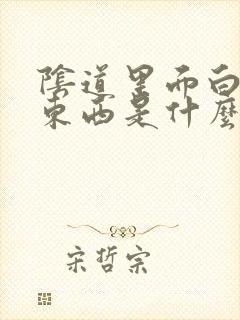 陰道里面白
東西是什麼
宋哲宗